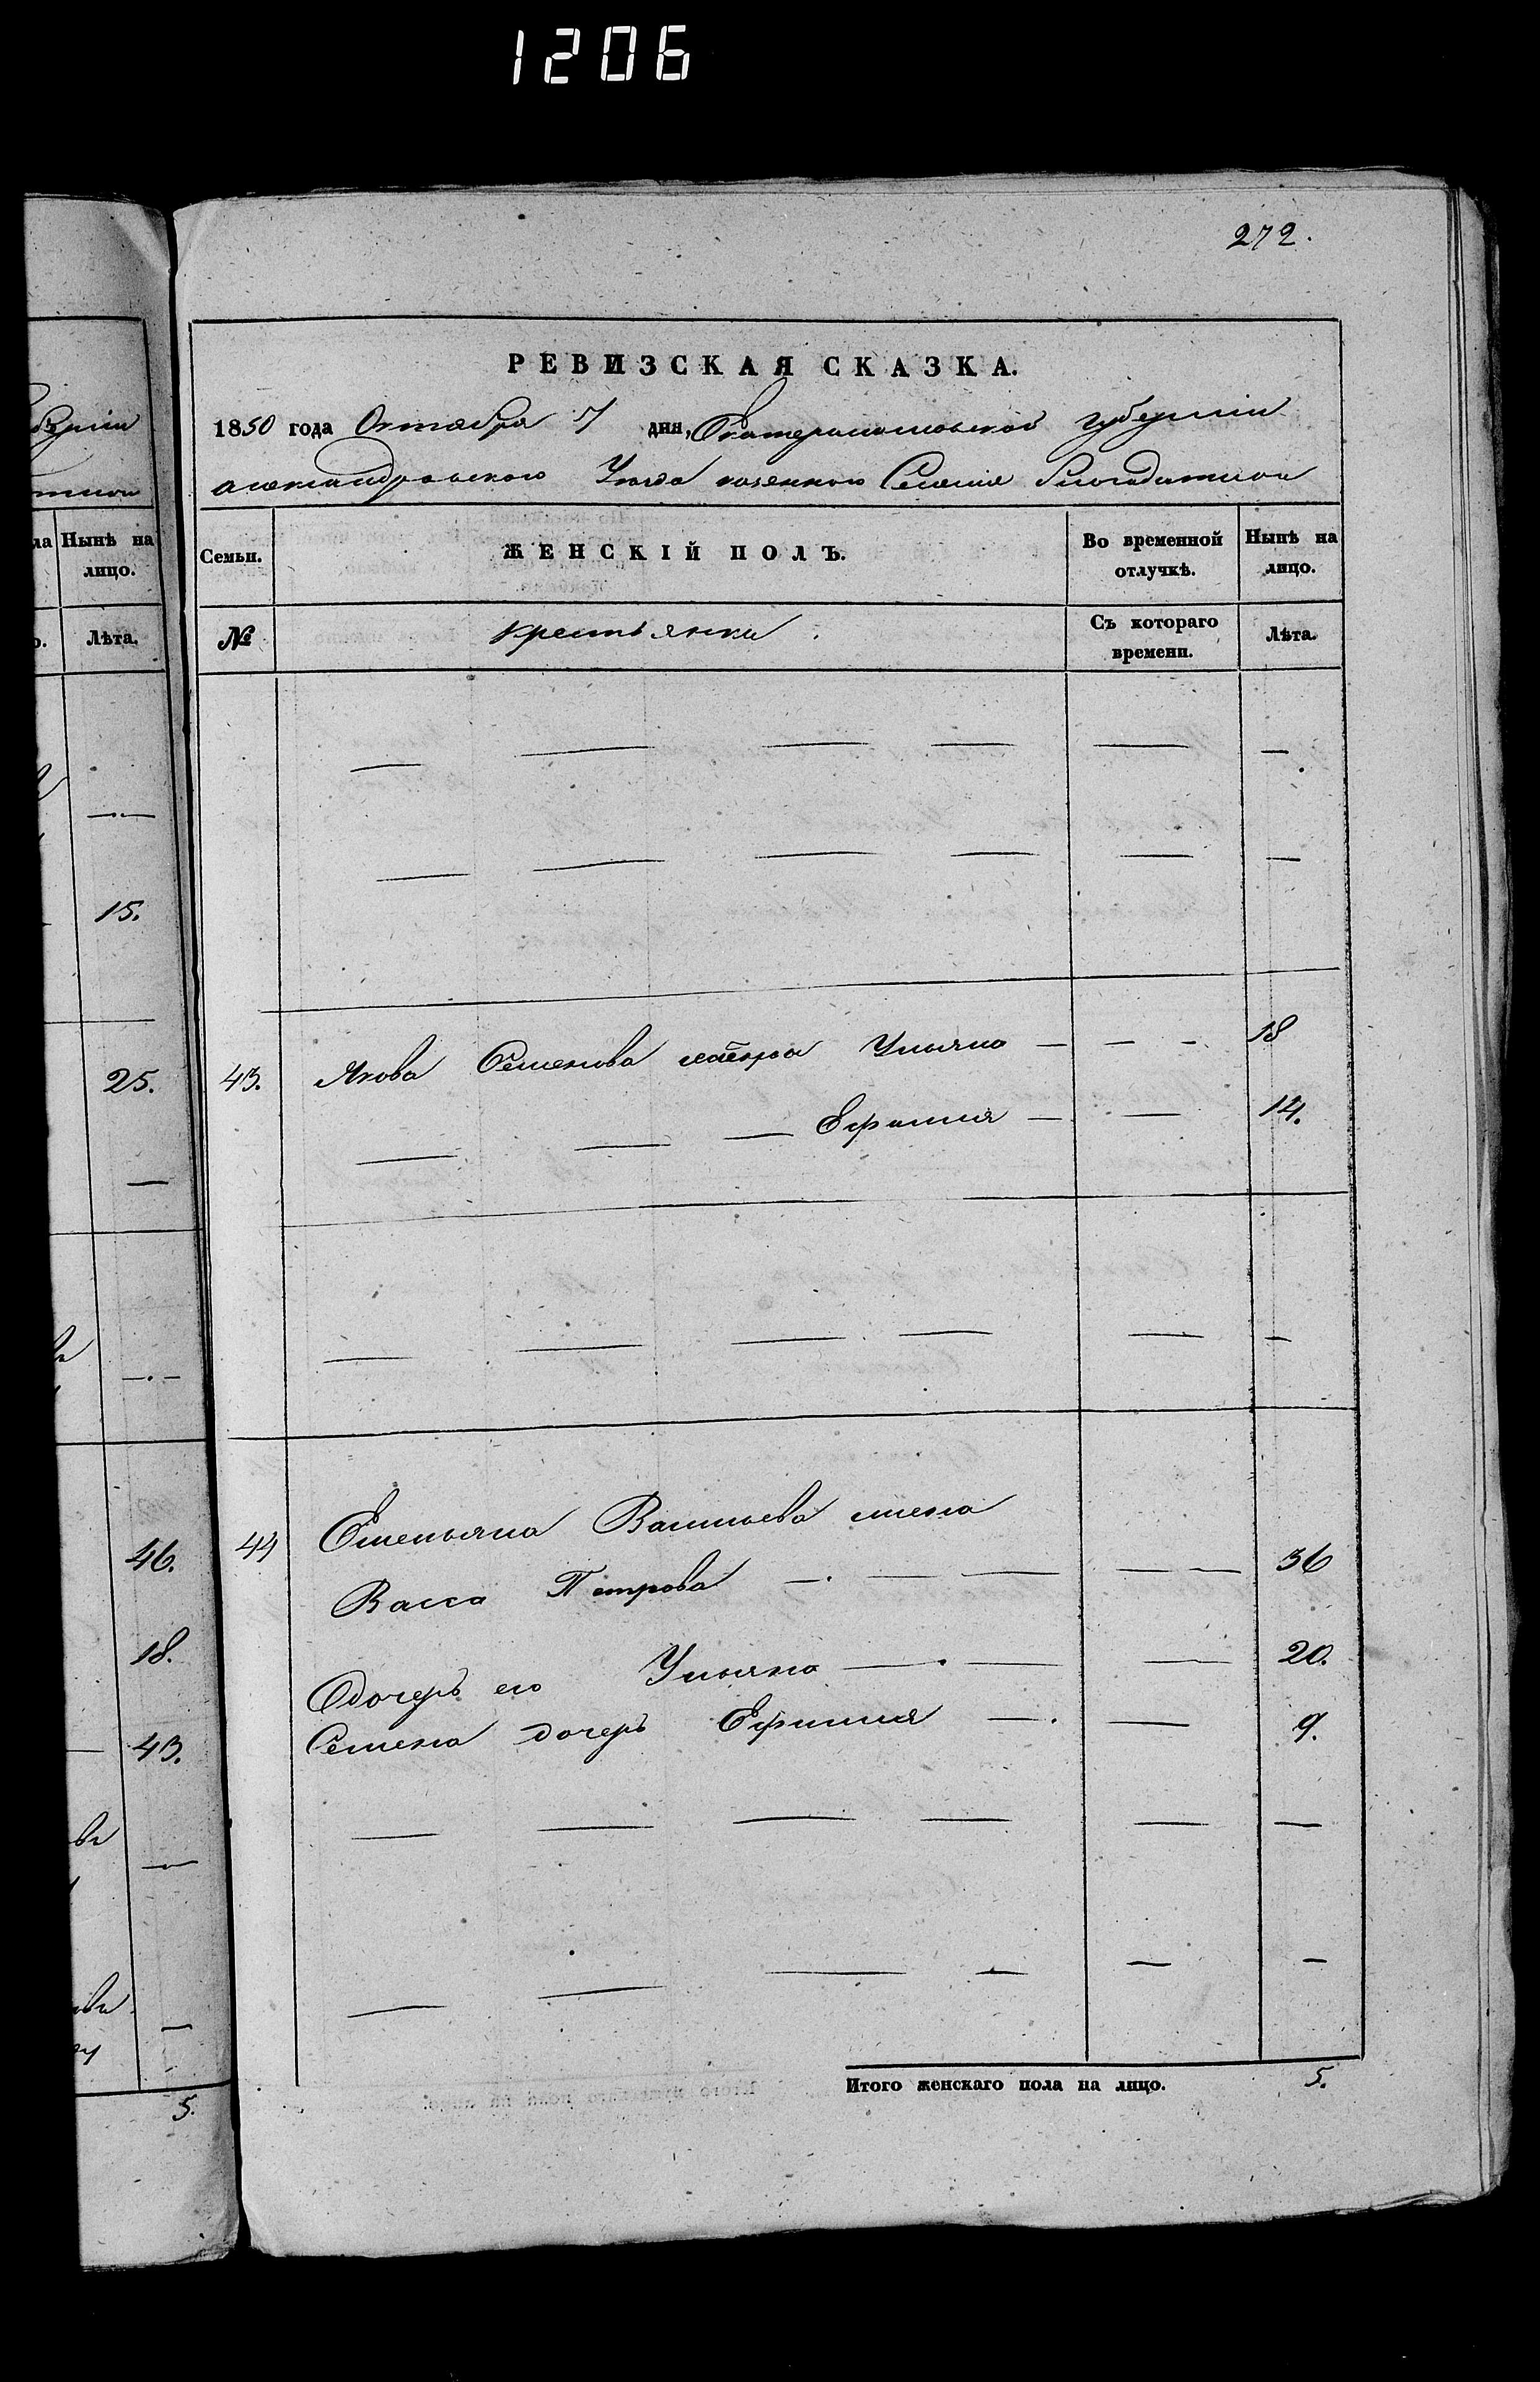 1206
272.
РЕВИЗСКАЯ СКАЗКА.
1850 года Октября 7 дня, Екатеринославской губернии
александровского Уезда казенного Селения
Семьи.
ЖЕНСКІЙ ПОЛЪ.
Во временной отлучкѣ.
Нынѣ на лицо.
№
крестьянки.
Съ котораго времени.
Лѣта.
43. Якова Семенова сестра Ульяна — — - 18
— — — Ефимия — — 14.
44 Емельяна Васильева жена
Васса Петрова —. — — — — 36
дочерь его Ульяна —. — — 20.
Семена дочерь Ефимия —. — 9.
Итого женскаго пола на лицо. 5.
Нынѣ на лицо.
Лѣта.
15.
25.
46.
18.
43.
5.